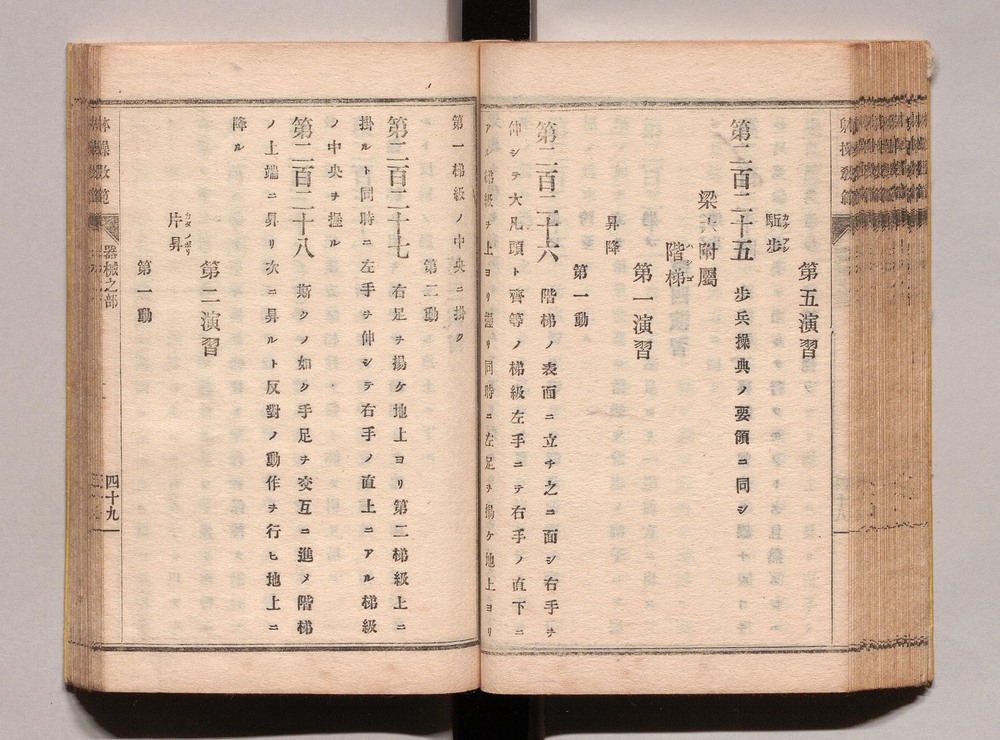 第五演習
駈歩
カケアシ
第二百二十五 歩兵操典ノ要領ニ同シ
梁木附屬
階梯
ハシゴ
第一演習
昇降
第一動
第二百二十六 階梯ノ表面ニ立チ之ニ面シ右手ヲ
伸シテ大凡頭ト齊等ノ梯級左手ニテ右手ノ直下ニ
アル梯級ヲ上ヨリ握リ同時ニ左足ヲ揚ケ地上ヨリ
第一梯級ノ中央ニ掛ク
第二動
第二百二十七 右足ヲ揚ケ地上ヨリ第二梯級上ニ
掛ルト同時ニ左手ヲ伸シテ右手ノ直上ニアル梯級
ノ中央ヲ握ル
第二百二十八 斯クノ如ク手足ヲ交互ニ進メ階梯
ノ上端ニ昇リ次ニ昇ルト反對ノ動作ヲ行ヒ地上ニ
降ル
第二演習
片昇
カタノボリ
第一動
体操教範
器械之部
四十九